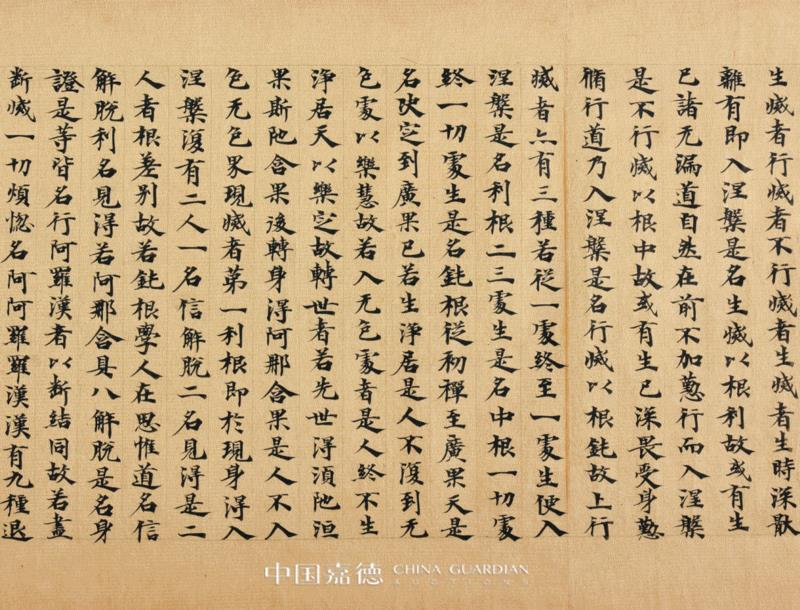 生滅者行滅者不行滅者生滅者生時深猒
離有即入涅槃是名生滅以根利故或有生
已諸无漏道自然在前不加懃行而入涅槃
是不行滅以根中故或有生已深畏受身懃
脩行道乃入涅槃是名行滅以根鈍故上行
滅者亦有三種若従一處終至一處生便入
涅槃是名利根二三處生是名中根一切處
終一切處生是名鈍根従初禪至廣果天是
名決定到廣果已若生淨居是人不復到无
色處以樂慧故若入无色處者是人終不生
淨居天以樂定故轉世者若先世得湏陁洹
果斯陁含果後轉身得阿那含果是人不入
色无色界現滅者第一利根即於現身得入
涅槃復有二人一名信解脫二名見得是二
人者根差別故若鈍根學人在思惟道名信
解脫利名見得若阿那含具八解脫是名身
證是等皆名行阿羅漢者以断結同故若盡
断滅一切煩惱名阿阿羅羅漢漢有九種退
中国嘉德 CHINA GUARDIAN
AUCTIONS